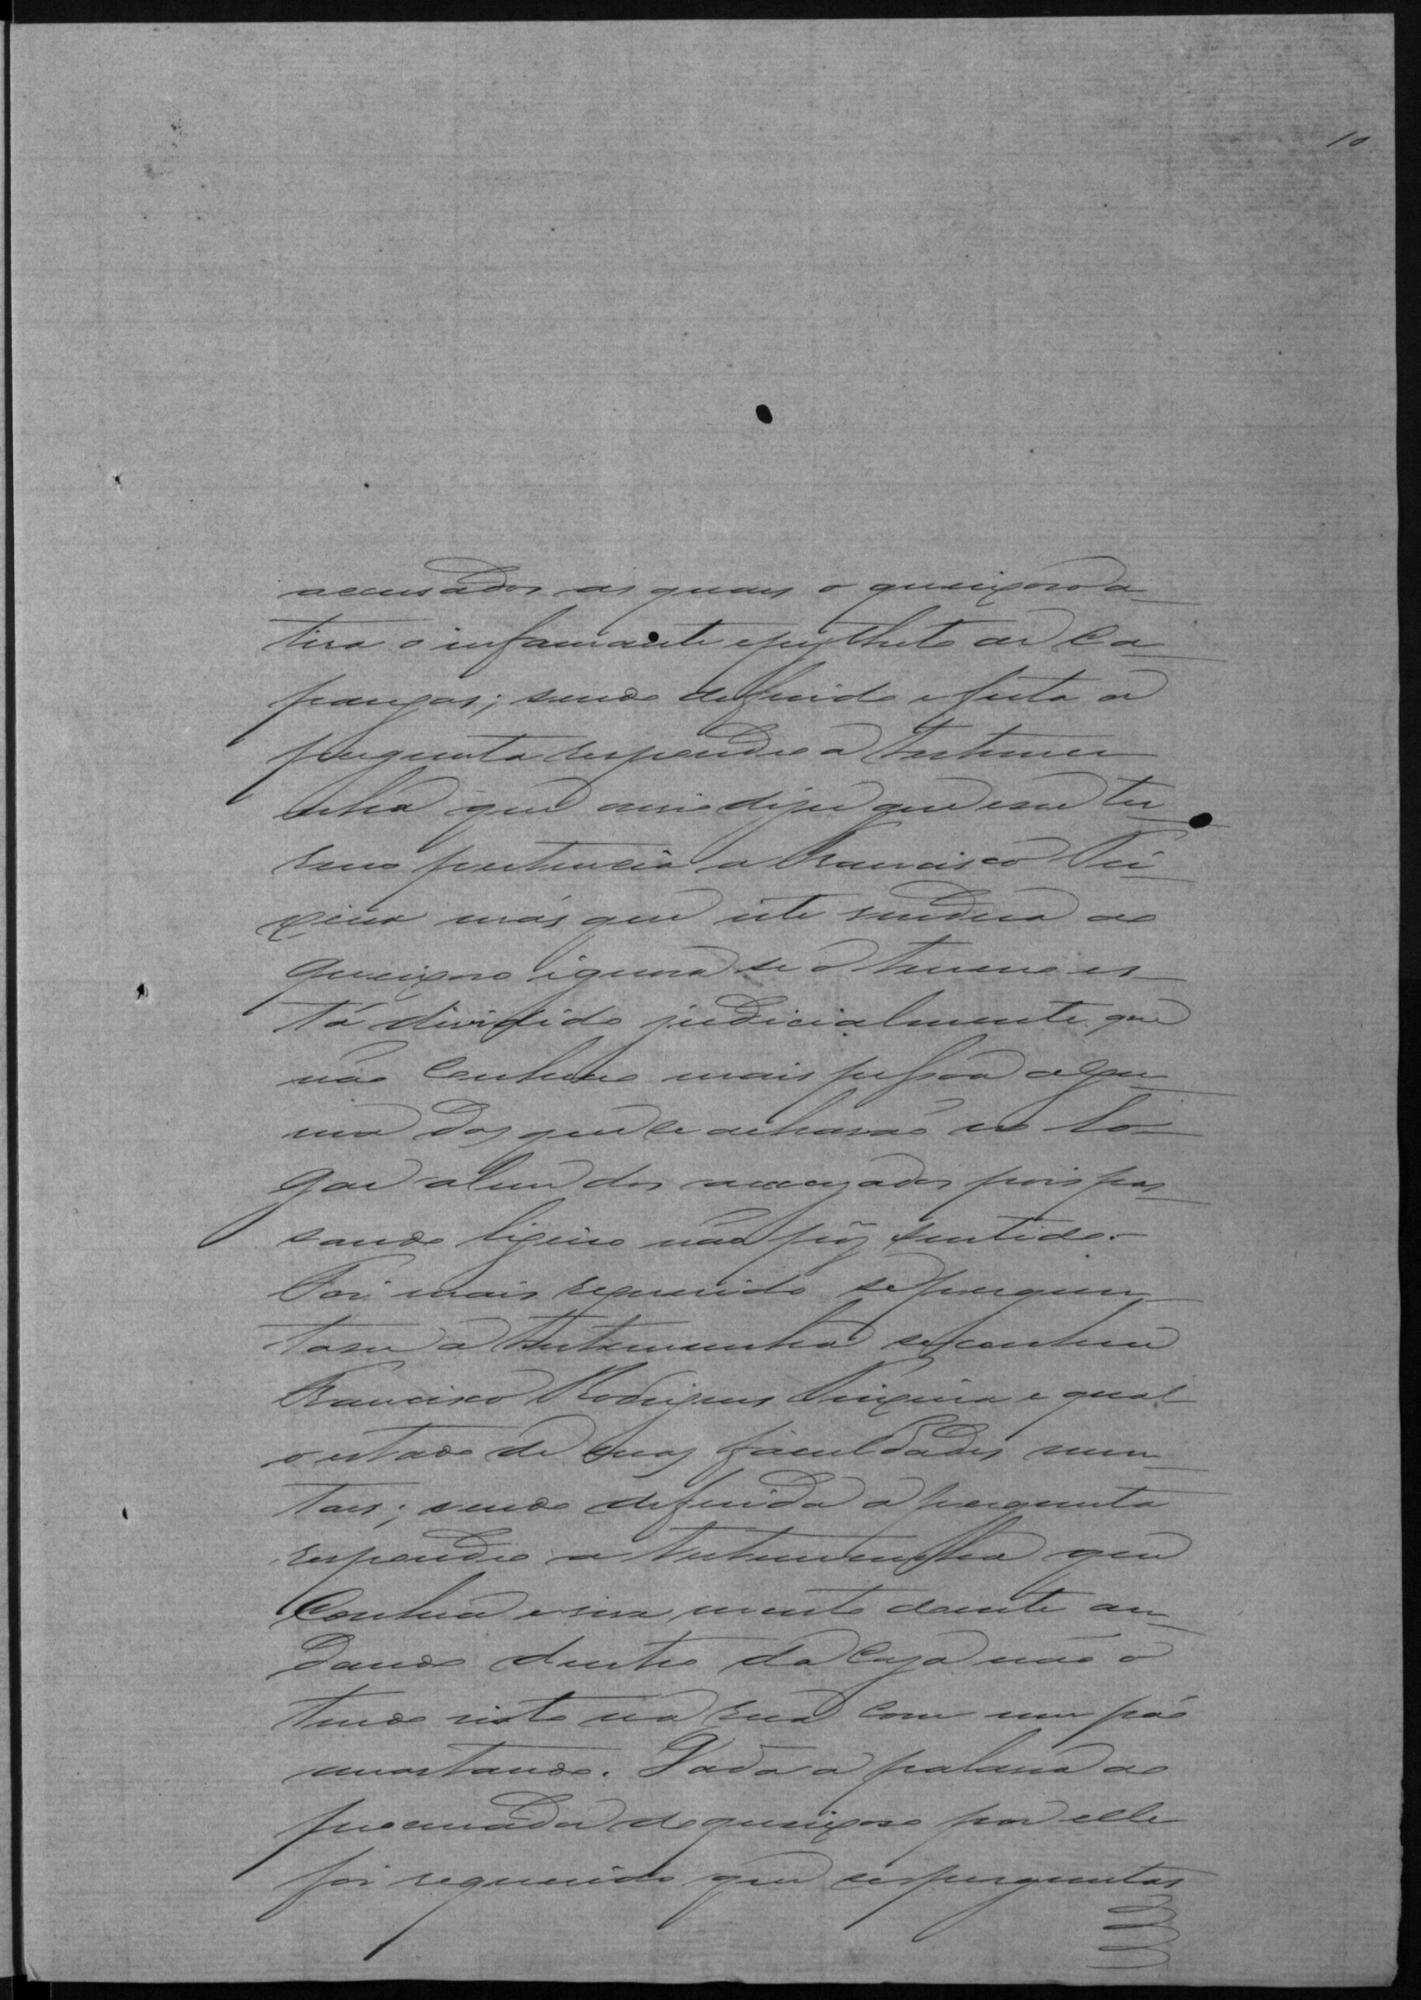 10
accusados as quaes o queixoso a-
tira o infamante epytheto de ca-
pangas; sendo deferido e feita a
pergunta respondeo a testemu-
nha que ouvio dizer que esse ter-
reno pertencia a Francisco Tei-
xeira mas que este vendera ao
queixoso ignora se o terreno es-
tá dividido judicialmente que
não conhece mais pessôa algu-
ma dos que se acharão no lo-
gar alem dos accuzados pois pas-
sando ligeiro não poz sentido.
Foi mais requerido se pergun-
tasse a testemunha se conhece
Francisco Rodrigues Teixeira e qual
o estado de suas faculdades men-
taes; sendo deferida a pergunta
respondeo a testemunha que
conhece e sua mente doente an-
dando dentro da caza não o
tendo visto na rua com um páo
arrastando. Dada a palavra ao
procurador do queixoso por elle
foi requerido que se perguntas